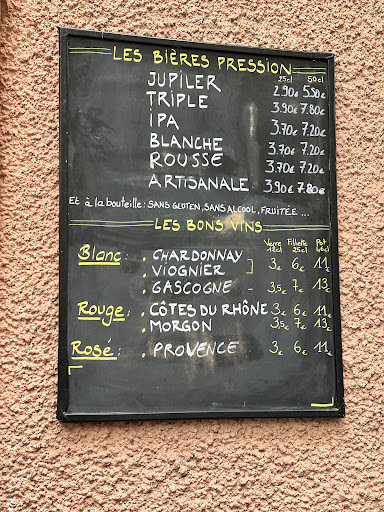 LES BIÈRES PRESSION
25cl 50cl
JUPILER 2.90€ 5.50€
TRIPLE 3.90€ 7.80€
IPA 3.70€ 7.20€
BLANCHE 3.70€ 7.20€
ROUSSE 3.70€ 7.20€
ARTISANALE 3.90€ 7.80€
Et à la bouteille: SANS GLUTEN, SANS ALCOOL, FRUITÉE ...
LES BONS VINS
Verre Fillette Pot
12cl 25cl 46cl
Blanc: . CHARDONNAY
. VIOGNIER ] 3€ 6€ 11€
. GASCOGNE - 3,5€ 7€ 13€
Rouge: . CÔTES DU RHÔNE 3€ 6€ 11€
. MORGON 3,5€ 7€ 13€
Rosé: . PROVENCE 3€ 6€ 11€